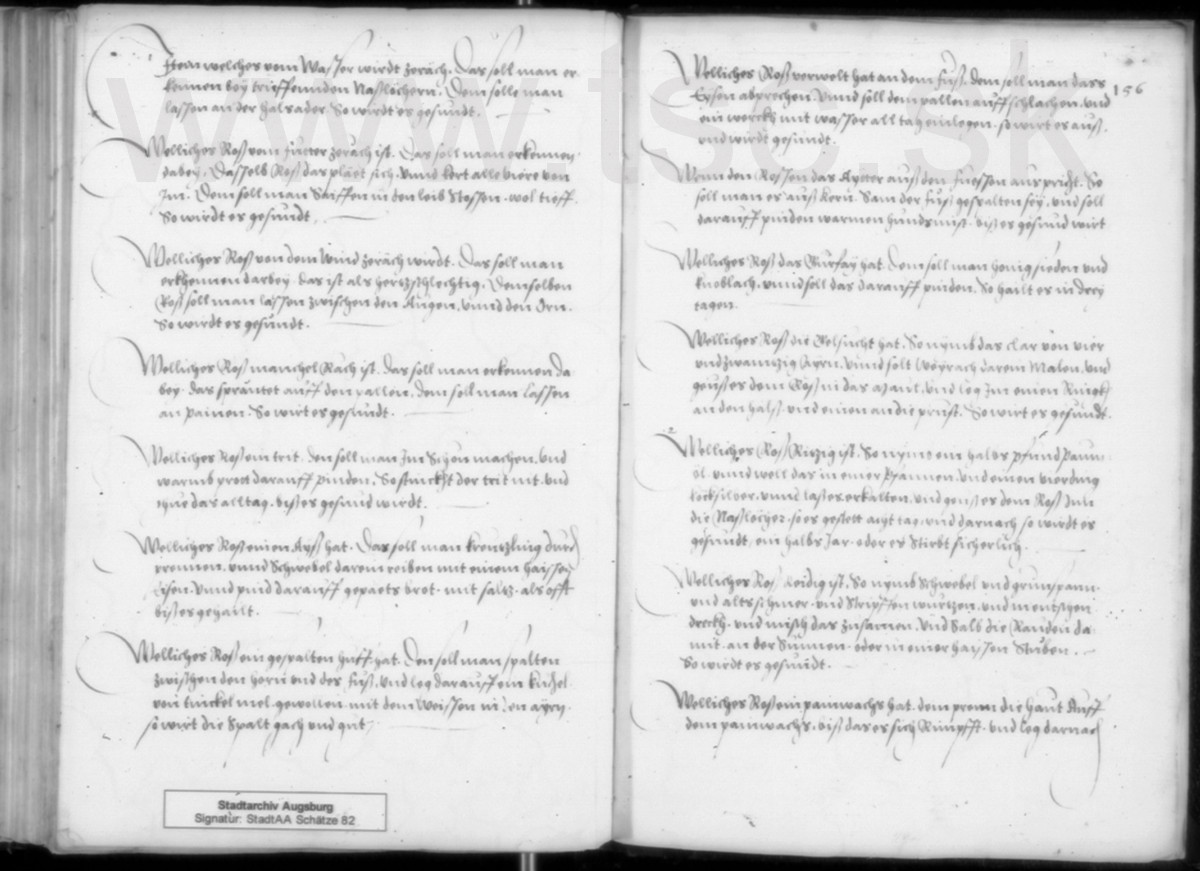 Item welches vom Wasser wirdt zeräch. Das soll man er
kennen bey trieffenden Naßlöchern. Dem solle man
lassen an der halsader. So wirdt es gesundt.
Wellicher Roß vom fuetter zeräch ist. Das soll man erkennen
dabey. Dasselb Roß das pläet sich, unnd kert alle viere von
Im. Dem soll man Saiffen in den leib Stossen, wol tieff.
So wirdt es gesundt.
Welliches Roß von dem wind zeräch wirdt. Das soll man
erkhennen darbey. das ist als hertzschlechtig. Demselben
Roß soll man lassen zwischen den Augen, unnd den Orn.
So wirdt es gesundt.
Welliches Roß manchel Räch ist. Das soll man erkennen da
bey. das spräntet auff den pallen, dem soll man lassen
an painen. So wirt es gesundt.
Welliches Roß ein trit. den soll man Im Schon machen, und
warmb prott darauff pinden. So der trit nit. und
thue das alltag. biß es gesund wirdt.
Welliches Roß einen Ayß hat. Das soll man kreutzling durch
prennen, unnd Schwebel darein reiben mit einem haissen
Eisen. Unnd pind darauff gepaets brot. mit saltz. als offt
biß es gehailt.
Welliches Roß ein gespalten huff hat. Den soll man spalten
zwischen den horn und der fuß, und leg darauff ein
von tinckel mel. gewollen mit dem Weissen in den ayrn.
so wirt die Spalt gach und gut.
Welliches Roß verwelt hat an dem fuß. Dem soll man das
156
Eysen abprechen. Unnd soll den pallen auff schlachen. und
ein werckh mit wasser all tag einlegen. so wirt es auß,
und wirdt gesundt.
Wenn den Rossen das Aytter auß den fuessen auspricht. So
soll man er auß kern. Sam der fuß gespalten sey, und soll
darauff pinden warmen hundsmist. biß es gesund wirt
Welliches Roß das hat. Dem soll man honig sieden und
knoblach. unnd soll das darauff pinden. So hailt es in drey
tagen.
Welliches Roß die Gelsucht hat. So nymb das clar von vier
undzwainzig Ayrn. Unnd solt Weyrach darein Malen, und
geuß es dem Roß in das Und leg Im einen
an den halß. und einen an die prust. So wirt es gesundt.
Welliches Roß Rietzig ist. So nym ein halbs pfund Paum
öl. unnd well das in einer Pfannen. und einen vierding
kecksilber. unnd laß es erkalten. und geuß es dem Roß Inn
die Naßlöcher. so es gestett acht tag. und darnach so wirdt es
gesundt. ein halbs Jar. oder es Stirbt sicherlich.
Welliches Roß Reidig ist. So nymb Schwebel und grünspann.
und alts schmer. und Stripffen wurtzen. und mentschen
dreckh. und misch das zusamen. Und Salb die Rauden da
mit. an der Sünnen. oder in einer haissen Stuben.
So wirdt es gesundt.
Welliches Roß ein painwachs hat. dem prenn die haut Auff
dem painwachs. biß das es sich Rümpfft. Und leg darnach
Stadtarchiv Augsburg
Signatur: StadtAA Schätze 82
www.tsc.sk